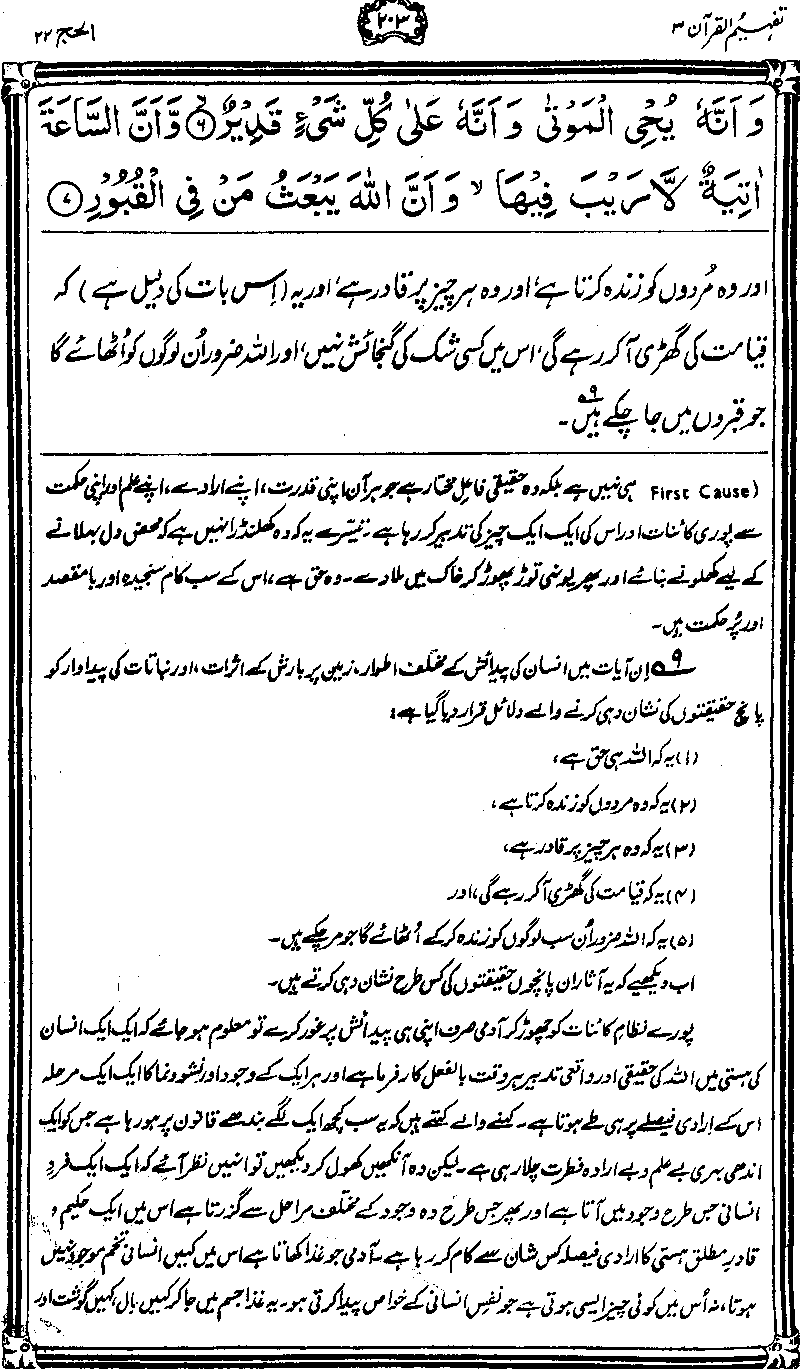 تفہیم القرآن ۳
۲۰۳
الحج ۲۲
وَ اَنَّهٗ يُحْيِ الْمَوْتٰى وَ اَنَّهٗ عَلٰى كُلِّ شَيْءٍ قَدِيْرٌ ۙ﴿۶﴾ وَّ اَنَّ السَّاعَةَ
اٰتِيَةٌ لَّا رَيْبَ فِيْهَا ۙ وَ اَنَّ اللّٰهَ يَبْعَثُ مَنْ فِي الْقُبُوْرِ ﴿۷﴾
اور وہ مُردوں کو زندہ کرتا ہے، اور وہ ہر چیز پر قادر ہے، اور یہ (اِس بات کی دلیل ہے) کہ
قیامت کی گھڑی آ کر رہے گی، اس میں کسی شک کی گنجائش نہیں، اور اللہ ضرور اُن لوگوں کو اُٹھائے گا
جو قبروں میں جا چکے ہیں۹؎۔
(First Cause ہی نہیں ہے بلکہ وہ حقیقی فاعلِ مختار ہے جو ہر آن اپنی قدرت، اپنے ارادے، اپنے علم اور اپنی حکمت
سے پوری کائنات اور اس کی ایک ایک چیز کی تدبیر کر رہا ہے۔ تیسرے یہ کہ وہ کھلنڈرا نہیں ہے کہ محض دل بہلانے
کے لیے کھلونے بنائے اور پھر یونہی توڑ پھوڑ کر خاک میں ملا دے۔ وہ حق ہے، اس کے سب کام سنجیدہ اور با مقصد
اور پُر حکمت ہیں۔
۹؎ اِن آیات میں انسان کی پیدائش کے مختلف اطوار، زمین پر بارش کے اثرات، اور نباتات کی پیداوار کو
پانچ حقیقتوں کی نشان دہی کرنے والے دلائل قرار دیا گیا ہے:
(۱) یہ کہ اللہ ہی حق ہے،
(۲) یہ کہ وہ مردوں کو زندہ کرتا ہے،
(۳) یہ کہ وہ ہر چیز پر قادر ہے،
(۴) یہ کہ قیامت کی گھڑی آ کر رہے گی، اور
(۵) یہ کہ اللہ ضرور اُن سب لوگوں کو زندہ کر کے اُٹھائے گا جو مر چکے ہیں۔
اب دیکھیے کہ یہ آثار ان پانچوں حقیقتوں کی کس طرح نشان دہی کرتے ہیں۔
پورے نظامِ کائنات کو چھوڑ کر آدمی صرف اپنی ہی پیدائش پر غور کرے تو معلوم ہو جائے کہ ایک ایک انسان
کی ہستی میں اللہ کی حقیقی اور واقعی تدبیر ہر وقت بالفعل کار فرما ہے اور ہر ایک کے وجود اور نشوونما کا ایک ایک مرحلہ
اس کے ارادی فیصلے پر ہی طے ہوتا ہے۔ کہنے والے کہتے ہیں کہ یہ سب کچھ ایک لگے بندھے قانون پر ہو رہا ہے جس کو ایک
اندھی بہری بے علم و بے ارادہ فطرت چلا رہی ہے۔ لیکن وہ آنکھیں کھول کر دیکھیں تو انہیں نظر آئے کہ ایک ایک فردِ
انسانی جس طرح وجود میں آتا ہے اور پھر جس طرح وہ وجود کے مختلف مراحل سے گزرتا ہے اس میں ایک حکیم و
قادرِ مطلق ہستی کا ارادی فیصلہ کس شان سے کام کر رہا ہے۔ آدمی جو غذا کھاتا ہے اس میں کہیں انسانی تخم موجود نہیں
ہوتا، نہ اُس میں کوئی چیز ایسی ہوتی ہے جو نفسِ انسانی کے خواص پیدا کرتی ہو۔ یہ غذا جسم میں جا کر کہیں بال، کہیں گوشت اور